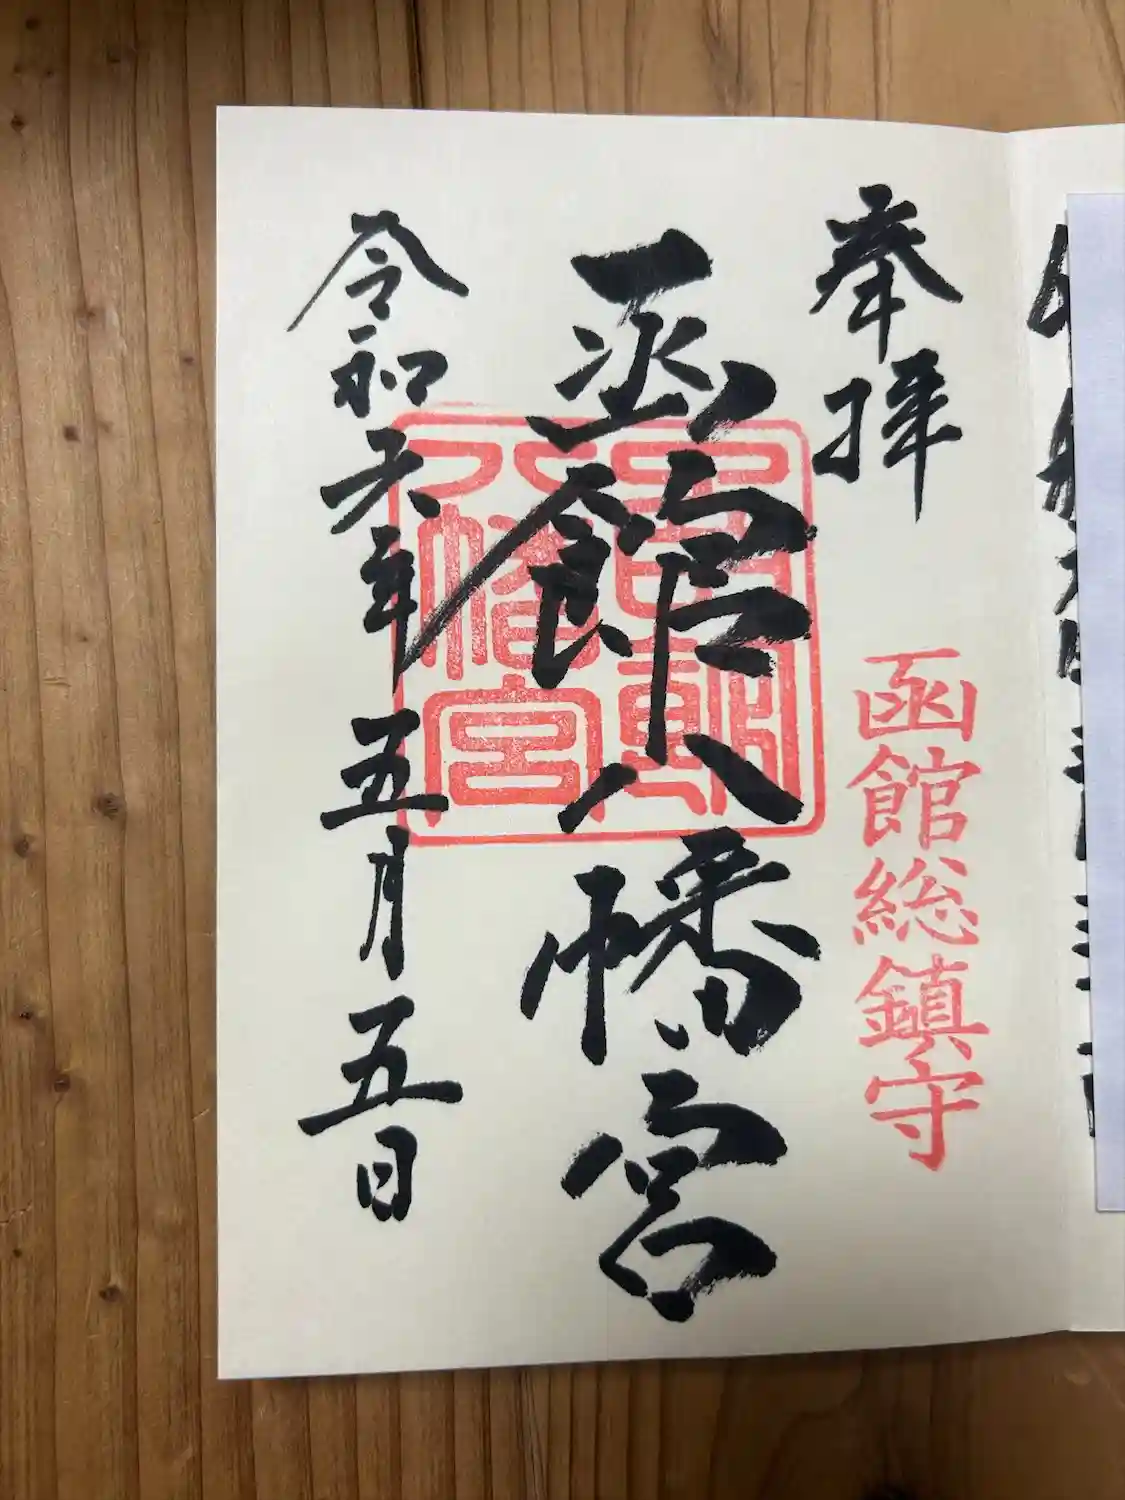 奉拝
函館総鎮守
函館八幡宮
八幡宮
令和六年五月五日